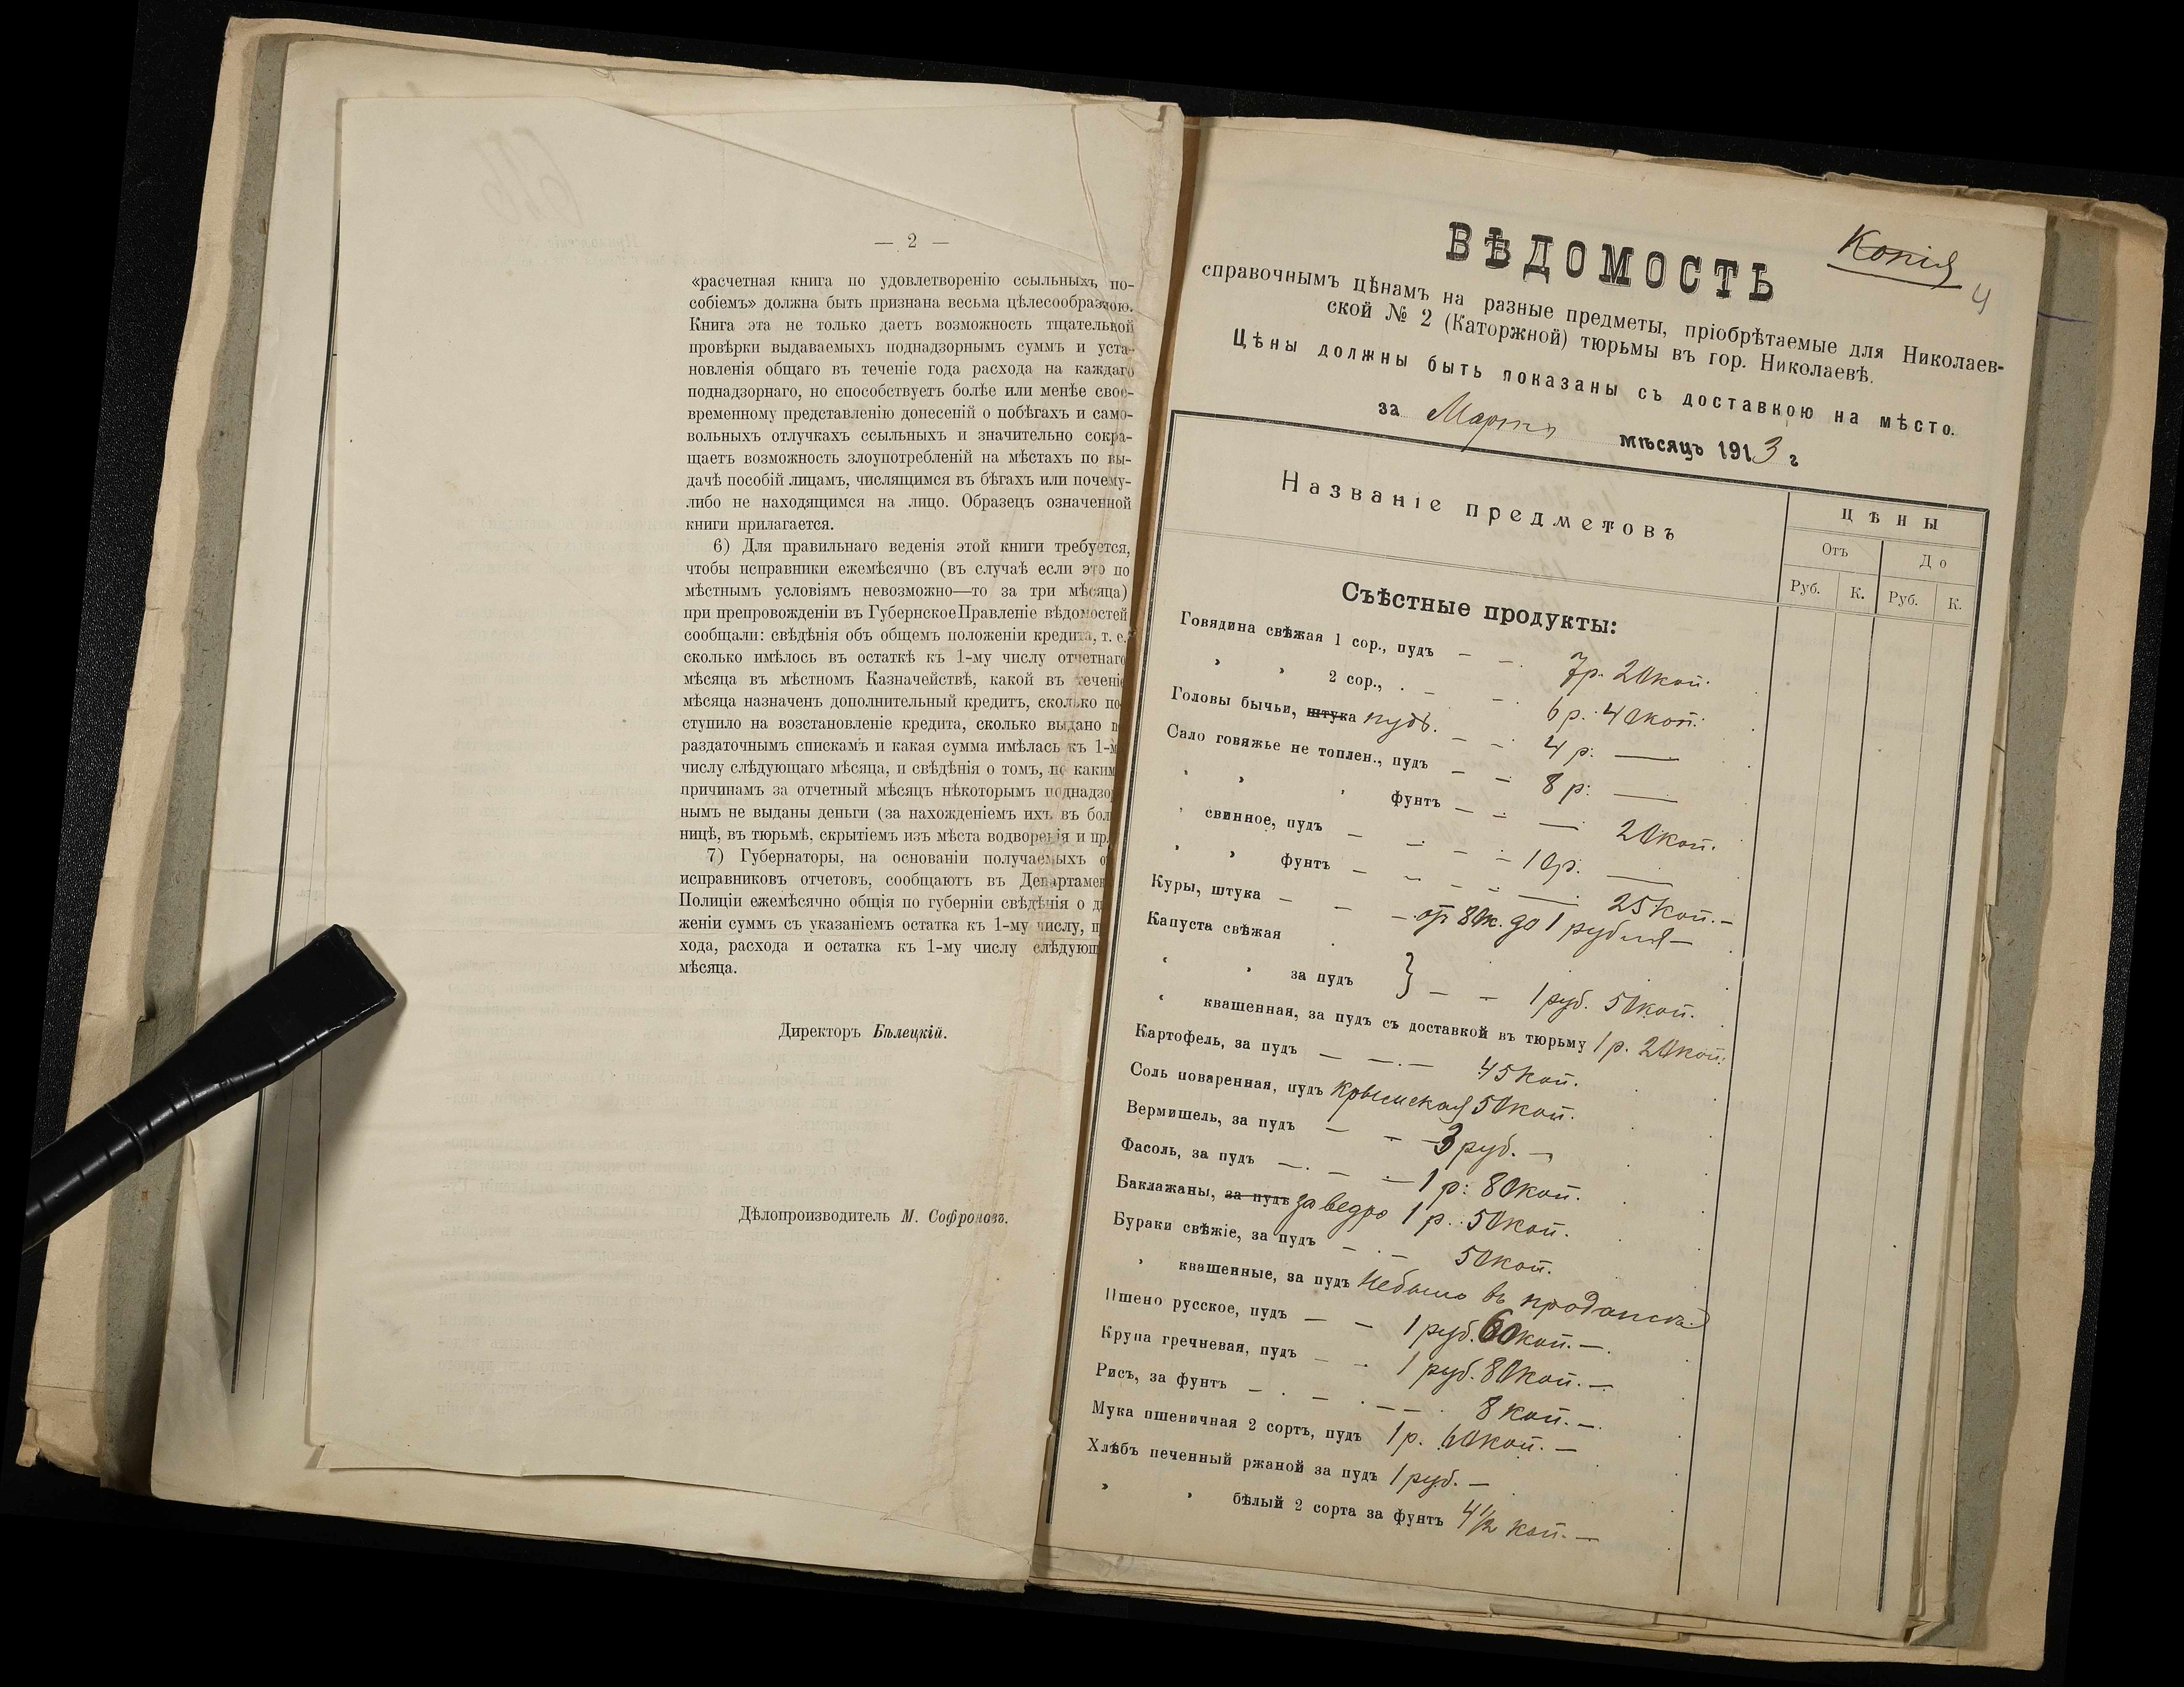 — 2 —
«расчетная книга по удовлетворенію ссыльныхъ по-
собіемъ» должна быть признана весьма цѣлесообразною.
Книга эта не только даетъ возможность тщательной
провѣрки выдаваемыхъ поднадзорнымъ суммъ и уста-
новленія общаго въ теченіе года расхода на каждаго
поднадзорнаго, но способствуетъ болѣе или менѣе свое-
временному представленію донесеній о побѣгахъ и само-
вольныхъ отлучкахъ ссыльныхъ и значительно сокра-
щаетъ возможность злоупотребленій на мѣстахъ по вы-
дачѣ пособій лицамъ, числящимся въ бѣгахъ или почему-
либо не находящимся на лицо. Образецъ означенной
книги прилагается.
6) Для правильнаго веденія этой книги требуется,
чтобы исправники ежемѣсячно (въ случаѣ если это по
мѣстнымъ условіямъ невозможно—то за три мѣсяца)
при препровожденіи въ Губернское Правленіе вѣдомостей
сообщали: свѣдѣнія объ общемъ положеніи кредита, т. е.
сколько имѣлось въ остаткѣ къ 1-му числу отчетнаго
мѣсяца въ мѣстномъ Казначействѣ, какой въ теченіе
мѣсяца назначенъ дополнительный кредитъ, сколько по-
ступило на возстановленіе кредита, сколько выдано п
раздаточнымъ спискамъ и какая сумма имѣлась къ 1-м
числу слѣдующаго мѣсяца, и свѣдѣнія о томъ, по каким
причинамъ за отчетный мѣсяцъ нѣкоторымъ поднадзо
нымъ не выданы деньги (за нахожденіемъ ихъ въ бол
ницѣ, въ тюрьмѣ, скрытіемъ изъ мѣста водворенія и пр.
7) Губернаторы, на основаніи получаемыхъ о
исправниковъ отчетовъ, сообщаютъ въ Департамен
Полиціи ежемѣсячно общія по губерніи свѣдѣнія о д
женіи суммъ съ указаніемъ остатка къ 1-му числу, п
хода, расхода и остатка къ 1-му числу слѣдующ
мѣсяца.
Директоръ Бѣлецкій.
Дѣлопроизводитель М. Софроновъ.
Копія
4
ВѢДОМОСТЬ
справочнымъ цѣнамъ на разные предметы, пріобрѣтаемые для Николаев-
ской № 2 (Каторжной) тюрьмы въ гор. Николаевѣ.
Цѣны должны быть показаны съ доставкою на мѣсто.
за Мартъ мѣсяцъ 1913 г
Названіе предметовъ
ЦѢНЫ
Отъ До
Руб. К. Руб. К.
Съѣстные продукты:
Говядина свѣжая 1 сор., пудъ — — 7р. 20коп.
" " 2 сор., — — 6 р. 40коп.
Головы бычьи, штука пудъ. — — 4 р: —
Сало говяжье не топлен., пудъ — — 8 р: —
" " " фунтъ — — — 20коп.
" свинное, пудъ — — — — 10р. —
" " фунтъ — — — — — 25 коп. —
Куры, штука — — — от 80к. до 1 рубля —
Капуста свѣжая
" " за пудъ } — — 1 руб. 50коп.
" квашенная, за пудъ съ доставкой въ тюрьму 1 р. 20коп.
Картофель, за пудъ — — — 45 коп.
Соль поваренная, пудъ крымская 50коп.
Вермишель, за пудъ — — 3 руб. —
Фасоль, за пудъ — — — 1 р: 80коп.
Баклажаны, за пудъ за ведро 1 р. 50коп.
Бураки свѣжіе, за пудъ — — 50коп.
" квашенные, за пудъ Небыло въ продажѣ
Пшено русское, пудъ — — 1 руб. 60коп. —
Крупа гречневая, пудъ — — 1 руб. 80коп. —
Рисъ, за фунтъ — — — — 8 коп. —
Мука пшеничная 2 сортъ, пудъ 1 р. 60коп. —
Хлѣбъ печенный ржаной за пудъ 1 руб. —
" " бѣлый 2 сорта за фунтъ 4 1/2 коп. —